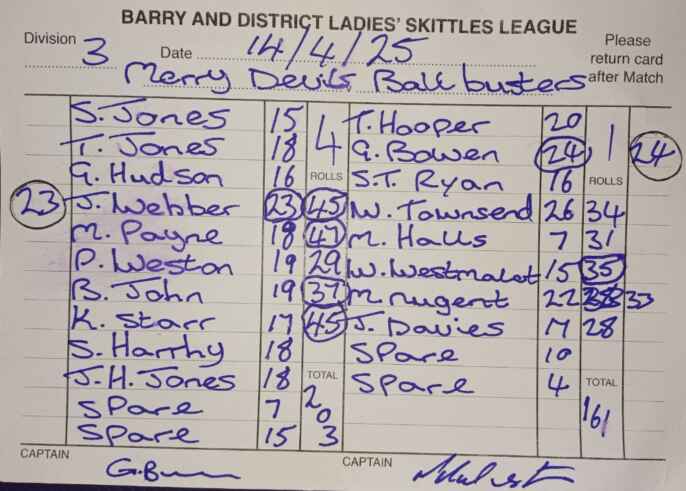 BARRY AND DISTRICT LADIES' SKITTLES LEAGUE
Division 3 Date 14/4/25 Please return card after Match
Merry Devils Ball busters
S. Jones 15 4 T. Hooper 20 1
T. Jones 18 G. Bowen 24 24
G. Hudson 16 ROLLS S.T. Ryan 16 ROLLS
23 J. Webber 23 45 W. Townsend 26 34
M. Payne 18 47 M. Halls 7 31
P. Weston 19 29 W. Westmalet 15 35
B. John 19 37 M. Nugent 22 33
K. Starr 17 45 J. Davies 17 28
S. Harrhy 18 SPare 10
J.H. Jones 18 TOTAL SPare 4 TOTAL
SPare 7 203 161
SPare 15
CAPTAIN CAPTAIN